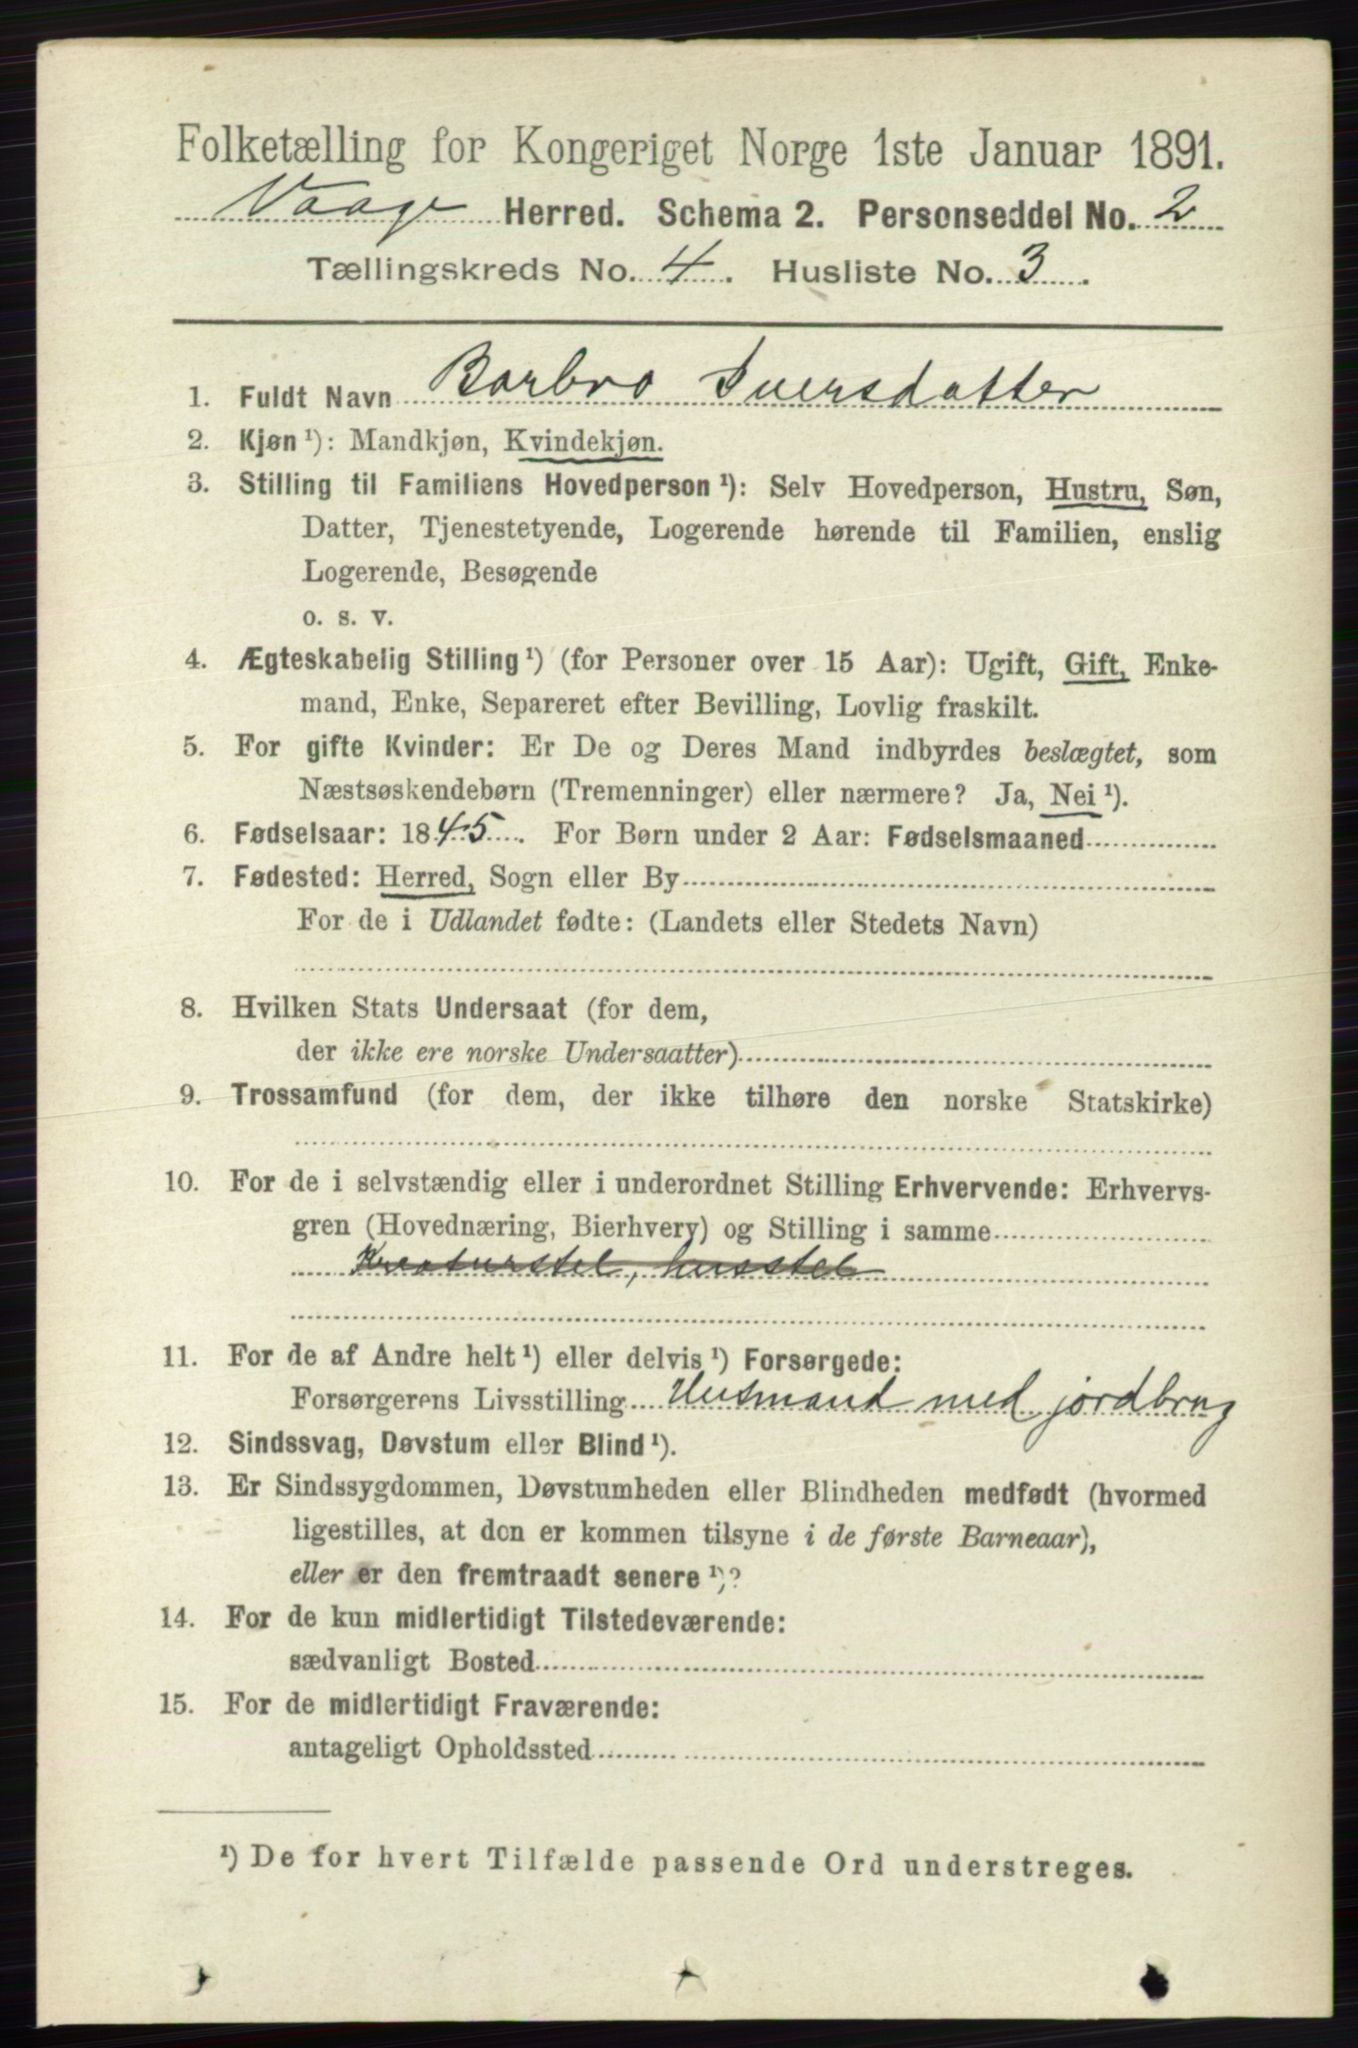 Folketælling for Kongeriget Norge 1ste Januar 1891.
Vaage Herred. Schema 2. Personseddel No. 2
Tællingskreds No. 4. Husliste No. 3.
1. Fuldt Navn Barbro Iversdatter
2. Kjøn ¹): Mandkjøn, Kvindekjøn.
3. Stilling til Familiens Hovedperson ¹): Selv Hovedperson, Hustru, Søn,
Datter, Tjenestetyende, Logerende hørende til Familien, enslig
Logerende, Besøgende
o. s. v.
4. Ægteskabelig Stilling ¹) (for Personer over 15 Aar): Ugift, Gift, Enke-
mand, Enke, Separeret efter Bevilling, Lovlig fraskilt.
5. For gifte Kvinder: Er De og Deres Mand indbyrdes beslægtet, som
Næstsøskendebørn (Tremenninger) eller nærmere? Ja, Nei ¹).
6. Fødselsaar: 1845. For Børn under 2 Aar: Fødselsmaaned
7. Fødested: Herred, Sogn eller By
For de i Udlandet fødte: (Landets eller Stedets Navn)
8. Hvilken Stats Undersaat (for dem,
der ikke ere norske Undersaatter)
9. Trossamfund (for dem, der ikke tilhøre den norske Statskirke)
10. For de i selvstændig eller i underordnet Stilling Erhvervende: Erhvervs-
gren (Hovednæring, Bierhverv) og Stilling i samme
Kreaturstel, husstel
11. For de af Andre helt ¹) eller delvis ¹) Forsørgede:
Forsørgerens Livsstilling Husmand med jordbrug
12. Sindssvag, Døvstum eller Blind ¹).
13. Er Sindssygdommen, Døvstumheden eller Blindheden medfødt (hvormed
ligestilles, at den er kommen tilsyne i de første Barneaar),
eller er den fremtraadt senere ¹)?
14. For de kun midlertidigt Tilstedeværende:
sædvanligt Bosted
15. For de midlertidigt Fraværende:
antageligt Opholdssted
¹) De for hvert Tilfælde passende Ord understreges.